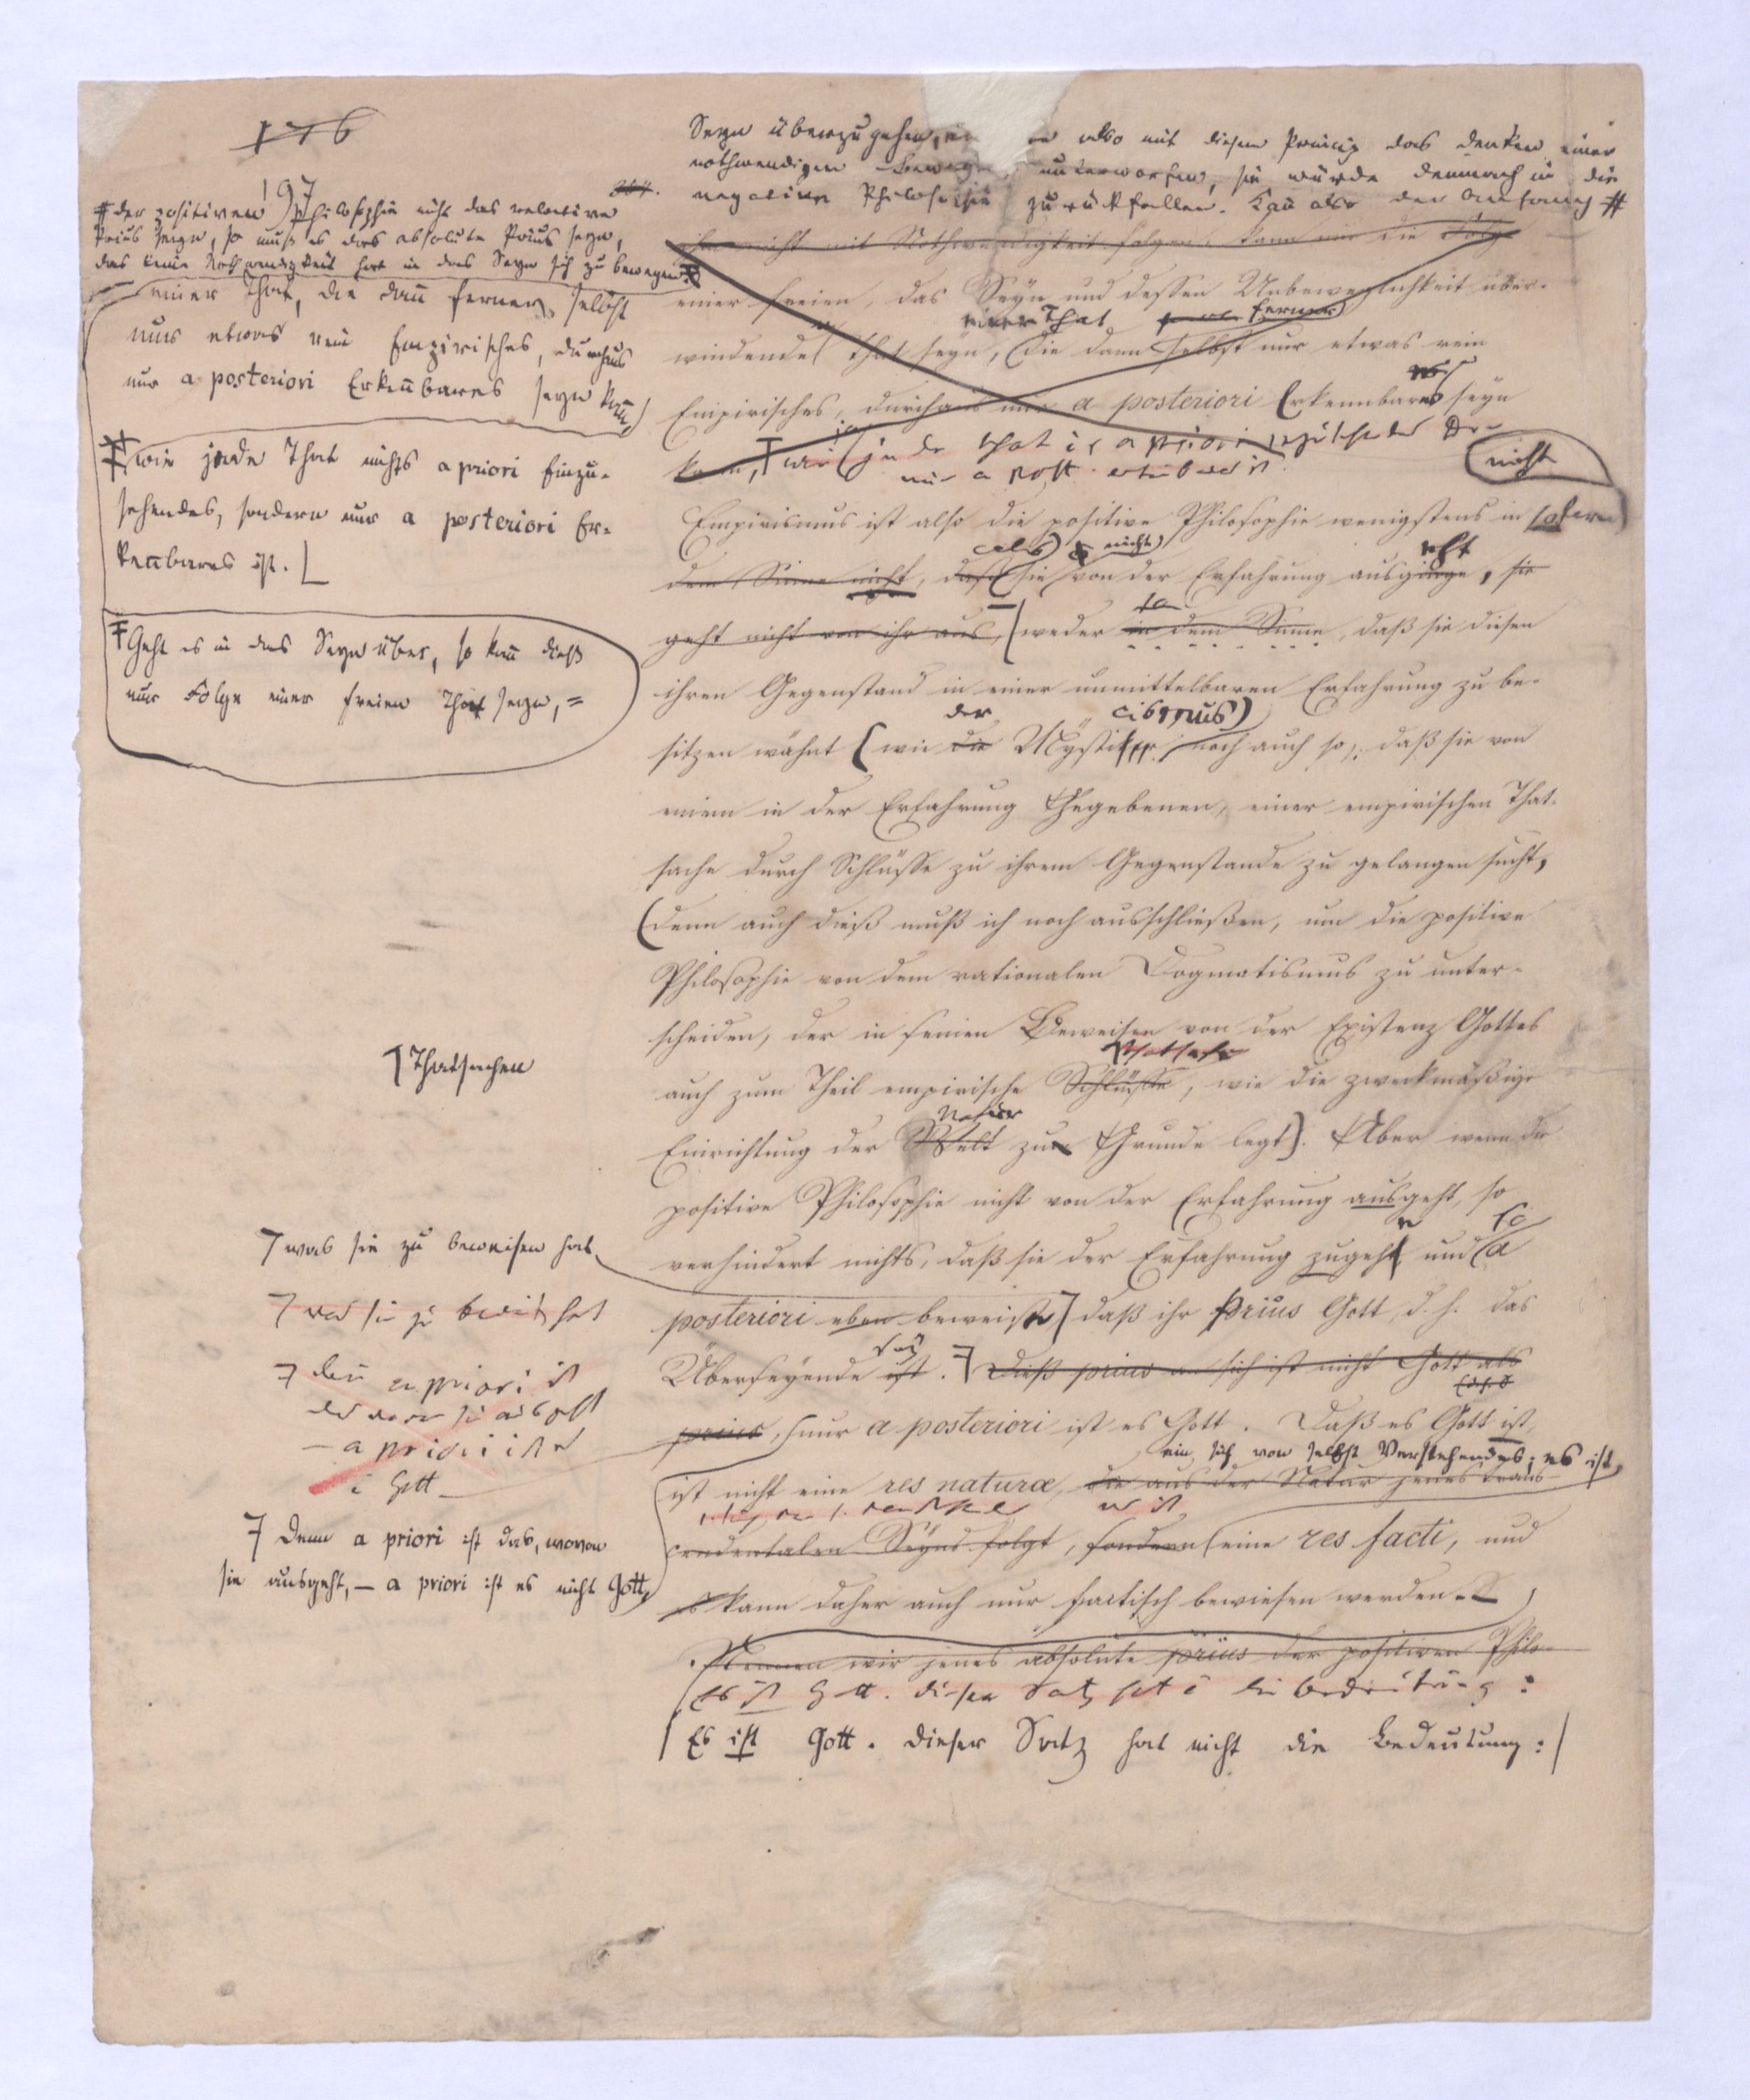 176
197
# der positiven Philosophie nicht das relative
Prius seyn, so muß es das absolute Prius seyn,
das keine Nothwendigkeit hat in das Seyn sich zu bewegen.
einer That, die dann ferner selbst
nur etwas rein Empirisches, durchaus
nur a posteriori Erkennbares seyn kann,
wie jede That nichts a priori Einzu-
sehendes, sondern nur a posteriori Er-
kennbares ist.
Geht es in das Seyn über, so kann dieß
nur Folge einer freien That seyn, =
Thatsachen
was sie zu beweisen hat
was sie zu beweis hat
denn a priori ist
das wovon sie ausgeht
– a priori ist es
Gott –
Denn a priori ist das, wovon
sie ausgeht, – a priori ist es nicht Gott,
Seyn überzugehen, also mit diesem Princip das Denken einer
nothwendigen Bewegung unterworfen, sie würde demnach in die
negative Philosophie zurückfallen. Kann also der Anfang #
ihm nicht mit Nothwendigkeit folgen, kann nur die Folge
einer freien, das Seyn und dessen Unbeweglichkeit über-
einer That ferner
windende That seyn, die dann selbst nur etwas rein
Empirisches, durchaus nur a posteriori Erkennbares seyn
kann, wie in der That a priori
nur a post.
nicht
Empirismus ist also die positive Philosophie wenigstens in sofern
als nicht geht
dem Sinne nicht, daß sie von der Erfahrung ausginge, sie
geht nicht von ihr aus, weder in dem Sinne, daß sie diesen
ihren Gegenstand in einer unmittelbaren Erfahrung zu be-
der cismus)
sitzen wähnt (wie die Mystiker, noch auch so, daß sie von
einem in der Erfahrung Gegebenen, einer empirischen That-
sache durch Schlüsse zu ihrem Gegenstande zu gelangen sucht,
(denn auch dieß muß ich noch ausschließen, um die positive
Philosophie von dem rationalen Dogmatismus zu unter-
scheiden, der in seinen Beweisen von der Existenz Gottes
Thatsache
auch zum Theil empirische Schlüsse, wie die zweckmäßige
Natur
Einrichtung der Welt zum Grunde legt). Aber wenn die
positive Philosophie nicht von der Erfahrung ausgeht, so
verhindert nichts, daß sie der Erfahrung zugeht und so a
posteriori eben beweist daß ihr Prius Gott, d. h. das
sey
Überseyende ist. Dieß prius an sich ist nicht Gott als
prius, nur a posteriori ist es Gott. Daß es Gott ist,
ein sich von selbst Verstehendes; es ist
ist nicht eine res naturæ, die aus der Natur jenes trans-
cendentalen Seyns folgt, sondern eine res facti, und
es kann daher auch nur factisch bewiesen werden.
Nennen wir jenes absolute prius der positiven Philo-
Es ist Gott. dieser Satz hat die Bedeutung:
Es ist Gott. Dieser Satz hat nicht die Bedeutung: